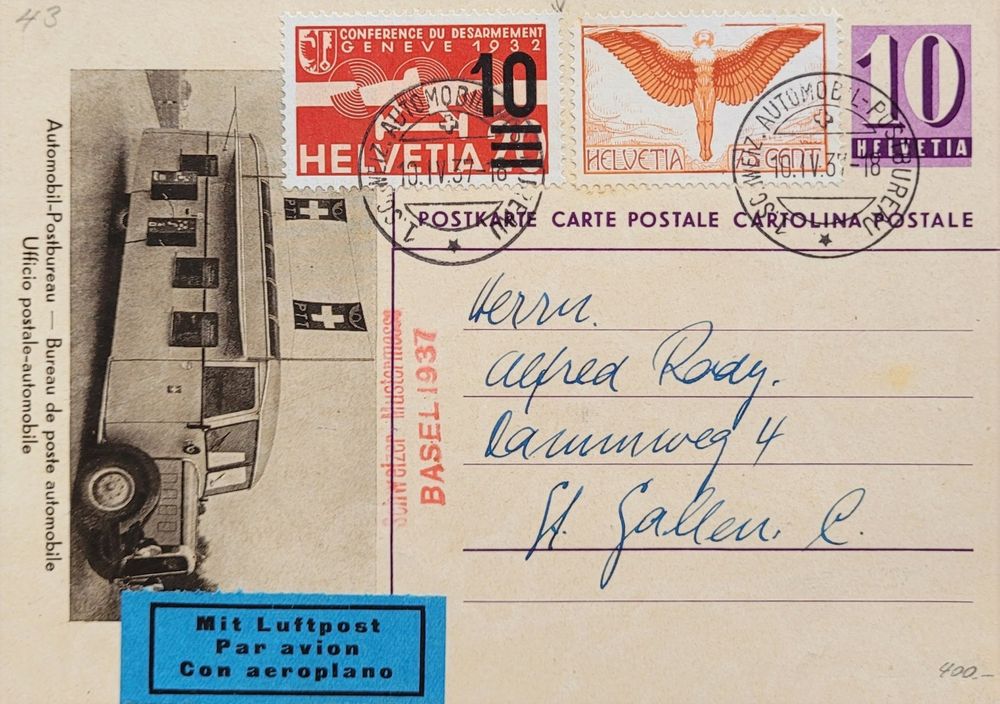 43
CONFERENCE DU DESARMEMENT
GENEVE 1932
10
HELVETIA 20
HELVETIA
10
HELVETIA
1. SCHWEIZ. AUTOMOBIL-POSTBUREAU
10.IV.37-18
1. SCHWEIZ. AUTOMOBIL-POSTBUREAU
10.IV.37-18
POSTKARTE CARTE POSTALE CARTOLINA POSTALE
Automobil-Postbureau — Bureau de poste automobile
Ufficio postale-automobile
PTT
PTT
Schweizer. Mustermesse
BASEL 1937
Herrn.
Alfred Rody.
Dammweg 4
St. Gallen. C.
Mit Luftpost
Par avion
Con aeroplano
400.-